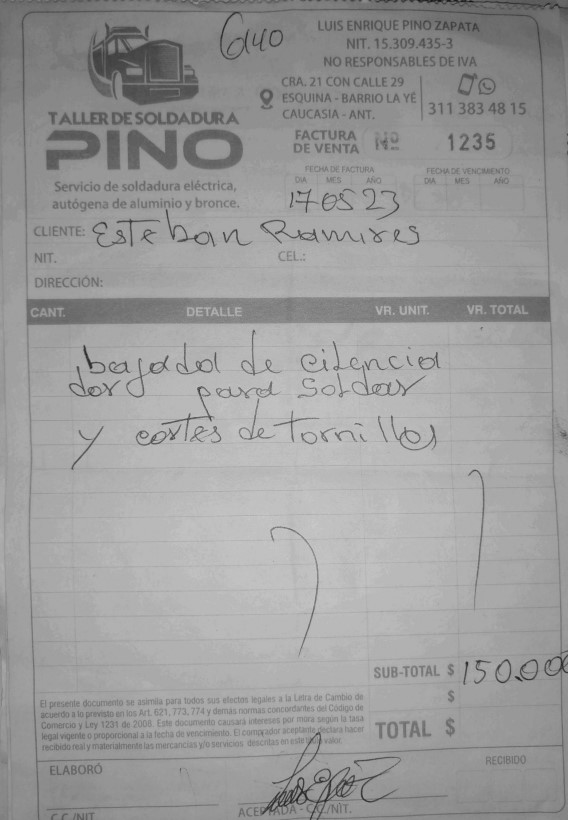 6140
LUIS ENRIQUE PINO ZAPATA
NIT. 15.309.435-3
NO RESPONSABLES DE IVA
CRA. 21 CON CALLE 29
ESQUINA - BARRIO LA YÉ
CAUCASIA - ANT.
311 383 48 15
TALLER DE SOLDADURA
PINO
Servicio de soldadura eléctrica,
autógena de aluminio y bronce.
FACTURA DE VENTA Nº 1235
FECHA DE FACTURA FECHA DE VENCIMIENTO
DIA MES AÑO DIA MES AÑO
17 05 23
CLIENTE: Esteban Ramires
NIT. CEL.:
DIRECCIÓN:
CANT. DETALLE VR. UNIT. VR. TOTAL
bajada de cilencia
dor para Soldar
y cortes de tornillos
SUB-TOTAL $ 150.000
$
TOTAL $
El presente documento se asimila para todos sus efectos legales a la Letra de Cambio de
acuerdo a lo previsto en los Art. 621, 773, 774 y demás normas concordantes del Código de
Comercio y Ley 1231 de 2008. Este documento causará intereses por mora según la tasa
legal vigente o proporcional a la fecha de vencimiento. El comprador aceptante declara haber
recibido real y materialmente las mercancías y/o servicios descritas en este título valor.
ELABORÓ RECIBIDO
C.C./NIT ACEPTADA - C.C./NIT.